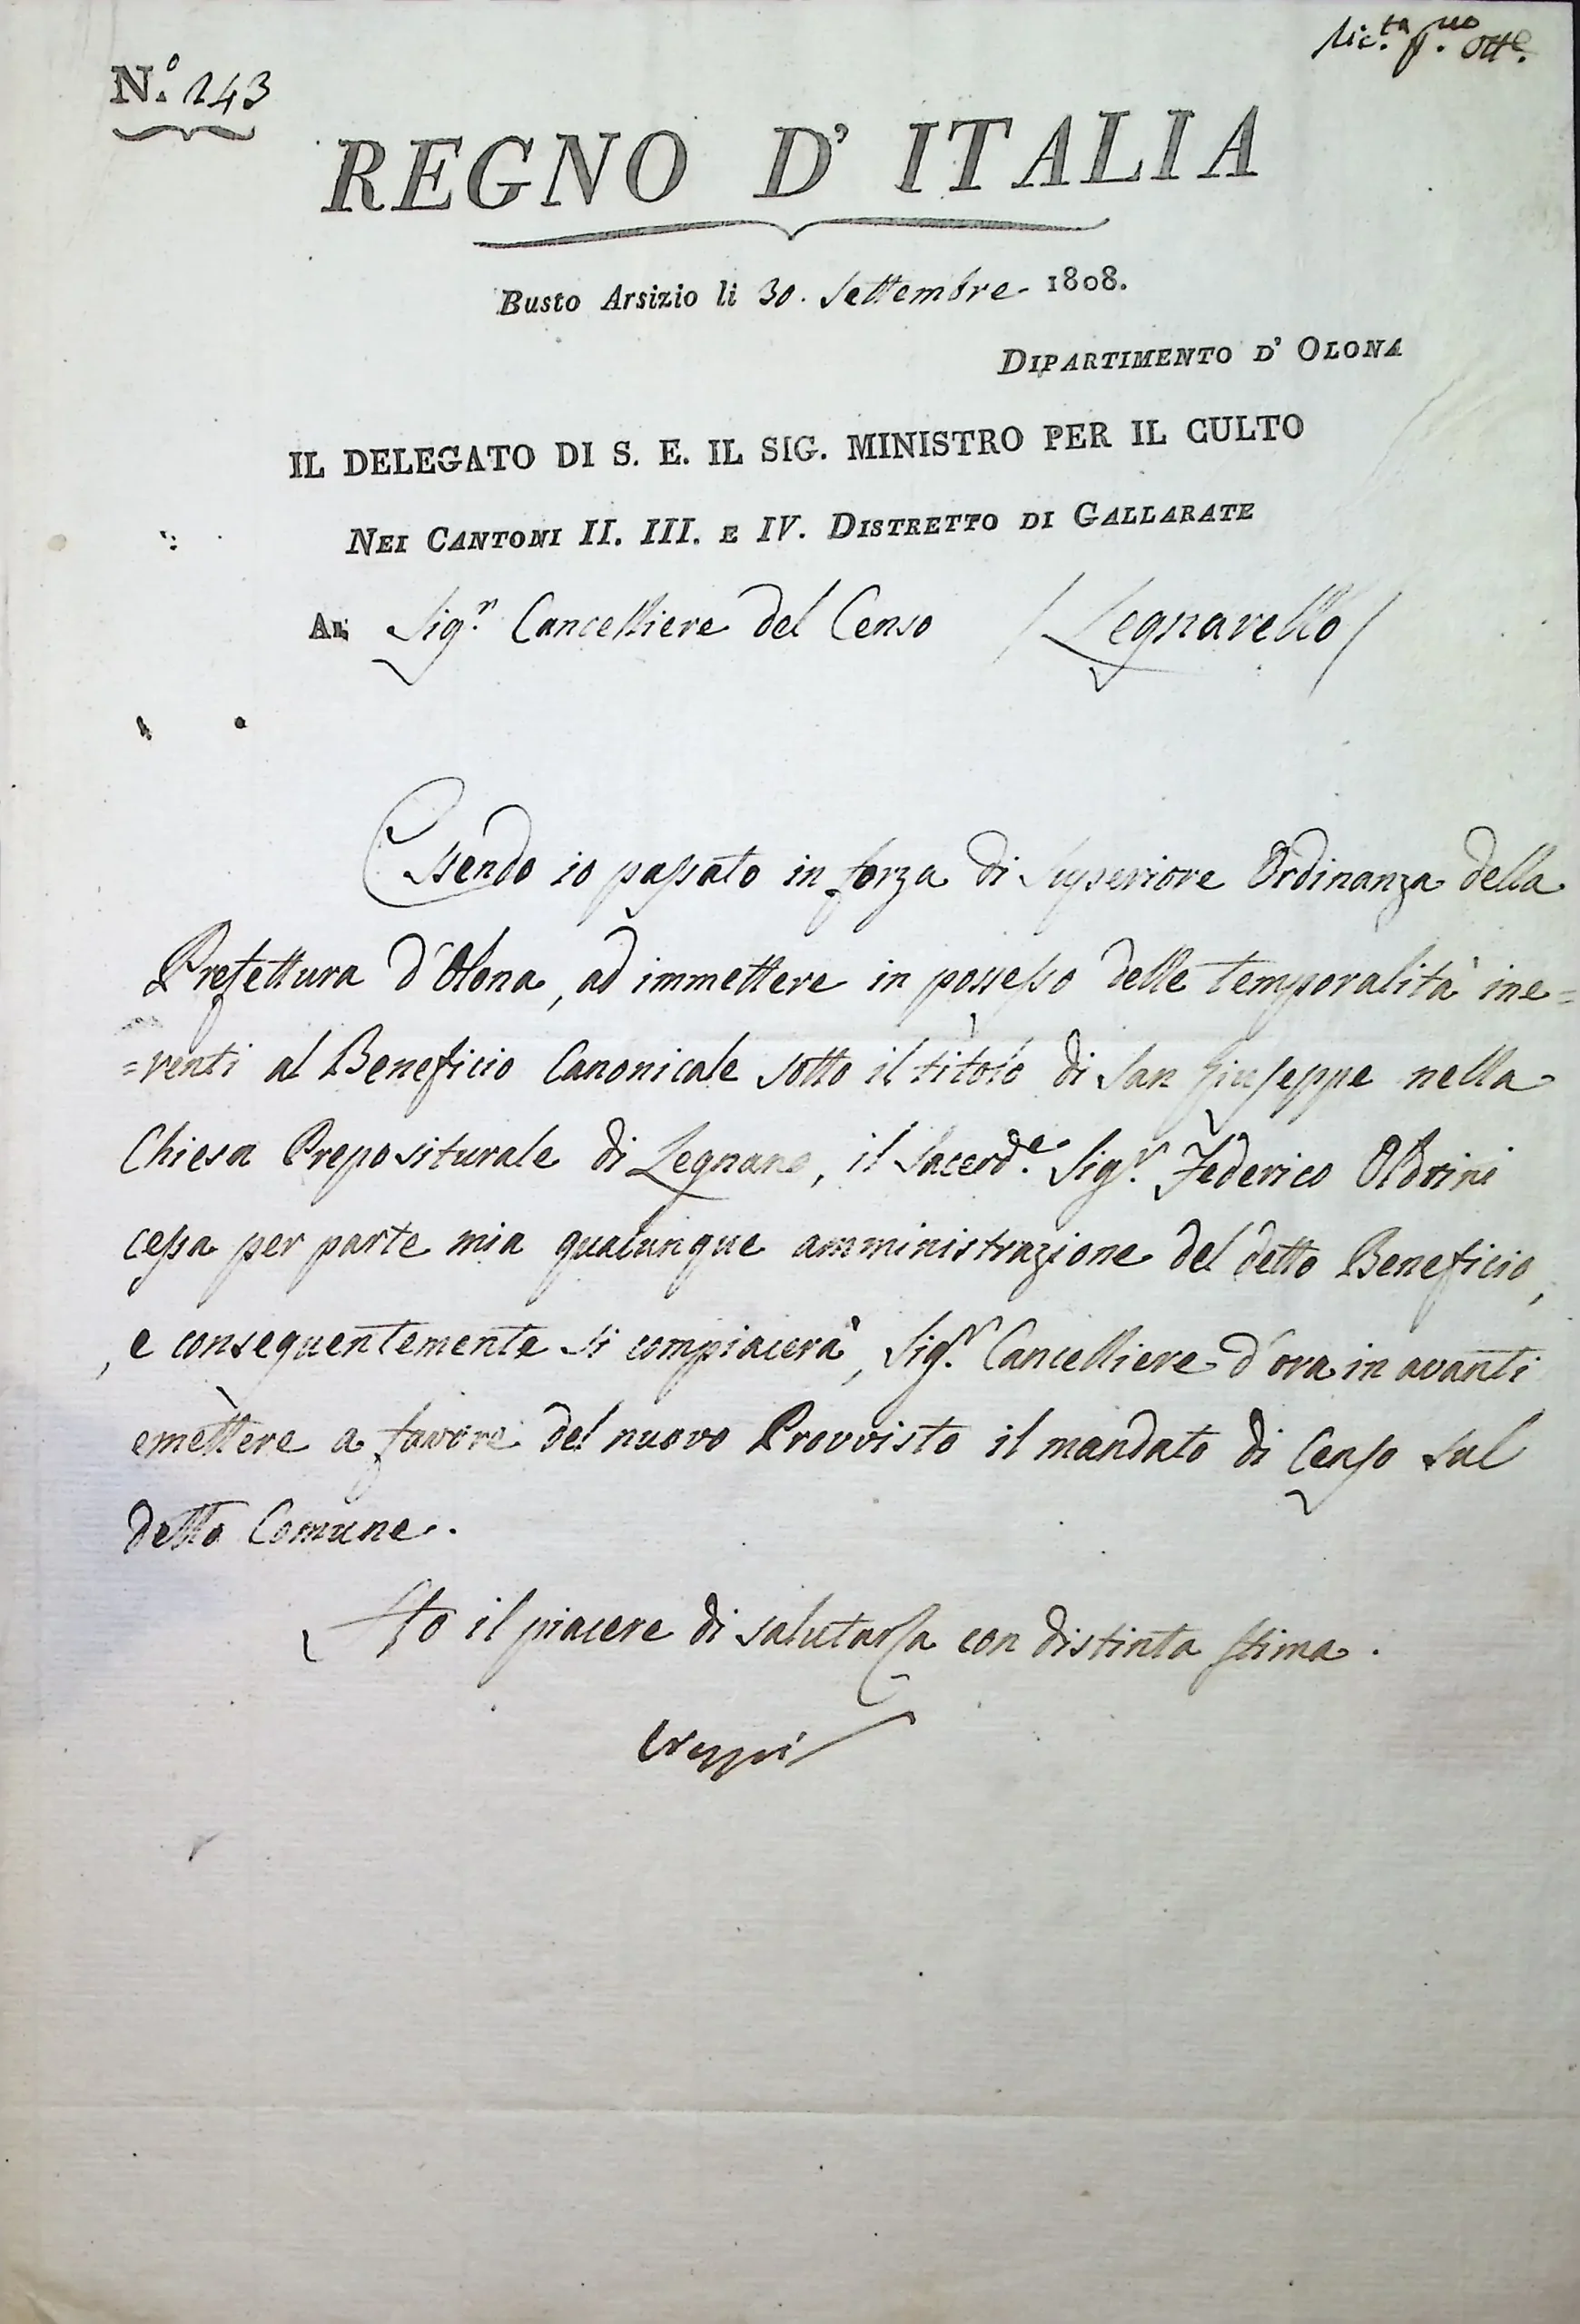 Ric.ta p.mo Ott.e
N.o 243
REGNO D' ITALIA
Busto Arsizio li 30. Settembre 1808.
DIPARTIMENTO D' OLONA
IL DELEGATO DI S. E. IL SIG. MINISTRO PER IL CULTO
NEI CANTONI II. III. E IV. DISTRETTO DI GALLARATE
AL Sig.r Cancelliere del Censo / Legnarello /
Essendo io passato in forza di Superiore Ordinanza della
Prefettura d'Olona, ad immettere in possesso delle temporalità ine=
=renti al Beneficio Canonicale sotto il titolo di San Giuseppe nella
Chiesa Prepositurale di Legnano, il Sacerd.e Sig.r Federico Oldrini
cessa per parte mia qualunque amministrazione del detto Beneficio,
, e conseguentemente si compiacerà, Sig.r Cancelliere d'ora in avanti
emettere a favore del nuovo Provvisto il mandato di Censo sul
detto Comune.
Ho il piacere di salutarla con distinta stima.
Crespi